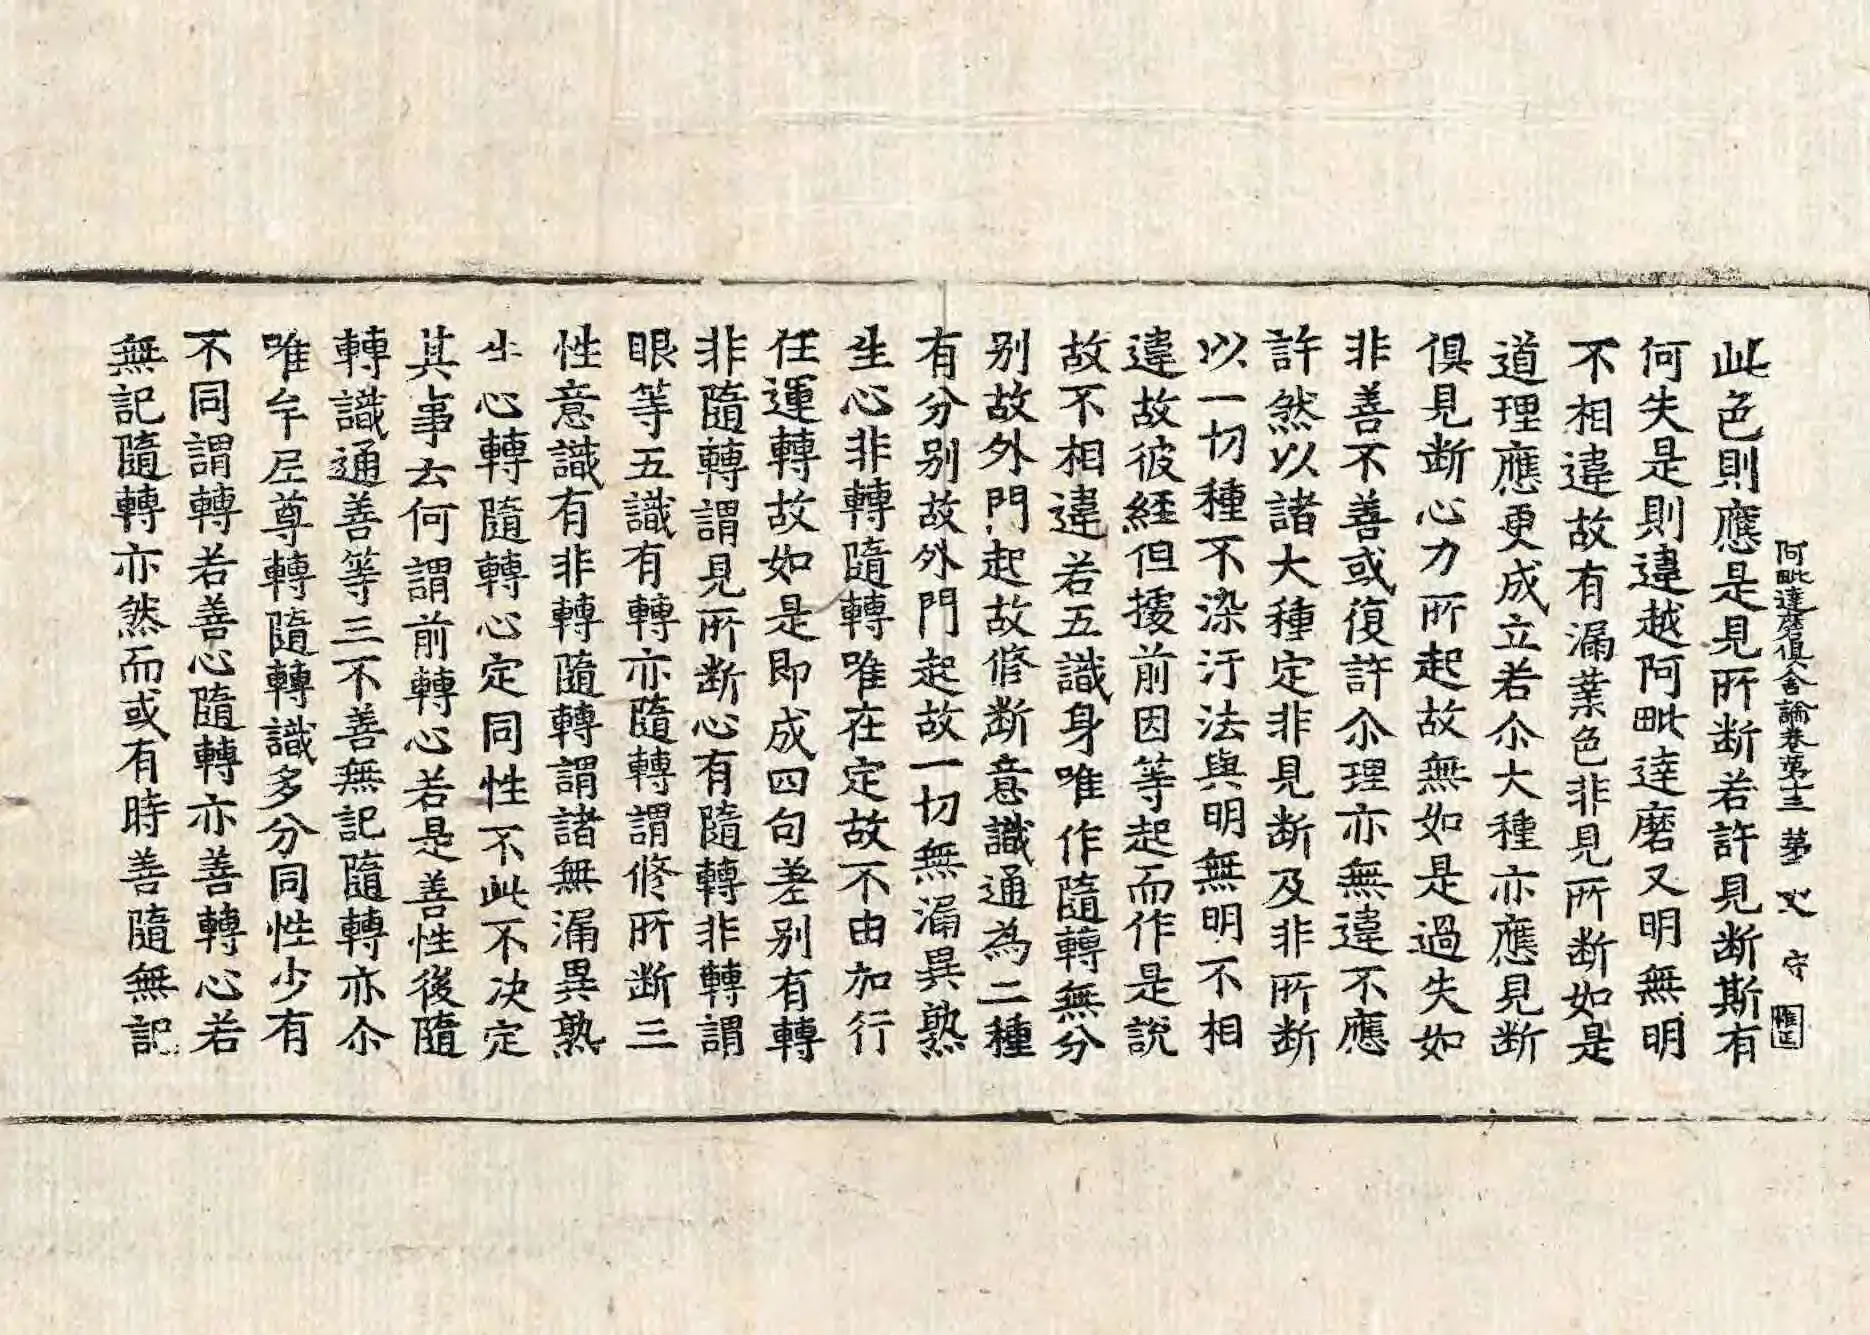 阿毗達磨俱舍論卷第十三 第 丈 守
此色則應是見所斷若許見斷斯有
何失是則違越阿毗達磨又明無明
不相違故有漏業色非見所斷如是
道理應更成立若尒大種亦應見斷
俱見斷心力所起故無如是過失如
非善不善或復許尒理亦無違不應
許然以諸大種定非見斷及非所斷
以一切種不染汙法與明無明不相
違故彼經但據前因等起而作是說
故不相違若五識身唯作隨轉無分
别故外門起故修斷意識通為二種
有分别故外門起故一切無漏異熟
生心非轉隨轉唯在定故不由加行
任運轉故如是即成四句差别有轉
非隨轉謂見所斷心有隨轉非轉謂
眼等五識有轉亦隨轉謂修所斷三
性意識有非轉隨轉謂諸無漏異熟
生心轉隨轉心定同性不此不決定
其事云何謂前轉心若是善性後隨
轉識通善等三不善無記隨轉亦尒
唯牟尼尊轉隨轉識多分同性少有
不同謂轉若善心隨轉亦善轉心若
無記隨轉亦然而或有時善隨無記